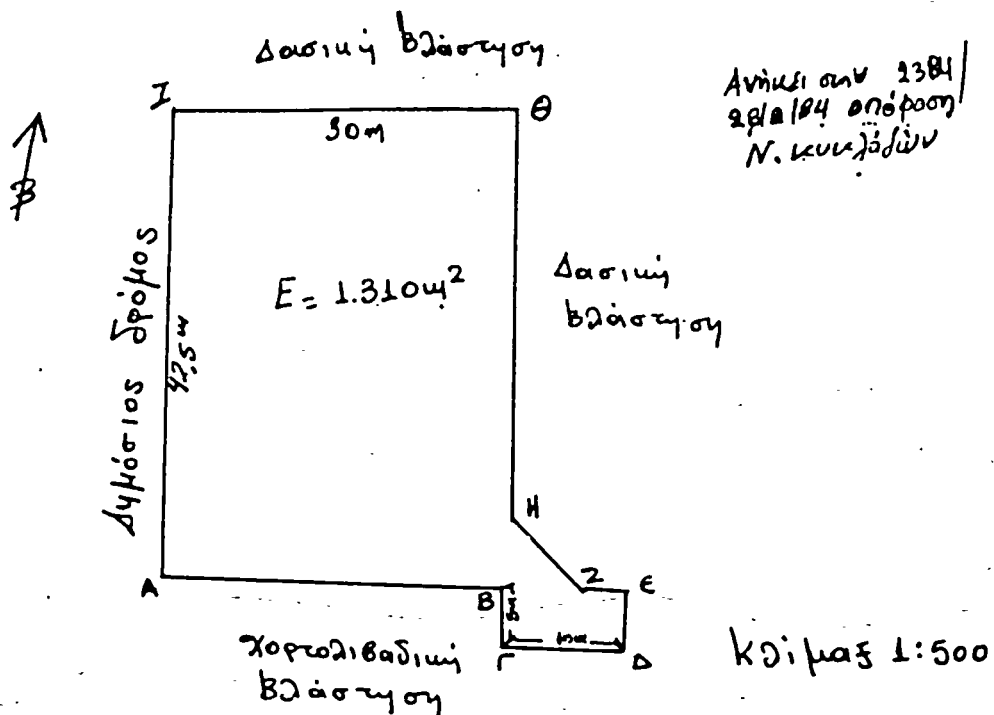 Δασική βλάστηση
Ανήκει στην 2384/
απόφαση
Ν. Κυκλάδων
Ι
Θ
30m
Β
Δημόσιος δρόμος
42,5m
Ε = 1.310m²
Δασική
βλάστηση
Η
Α
Β
Ζ
Ε
5m
10m
Γ
Δ
Χορτολιβαδική
βλάστηση
Κλίμαξ 1:500